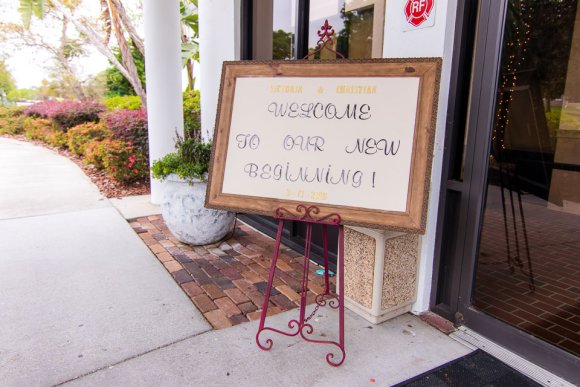 VICTORIA & CHRISTIAN
WELCOME
TO OUR NEW
BEGiNNING!
RF